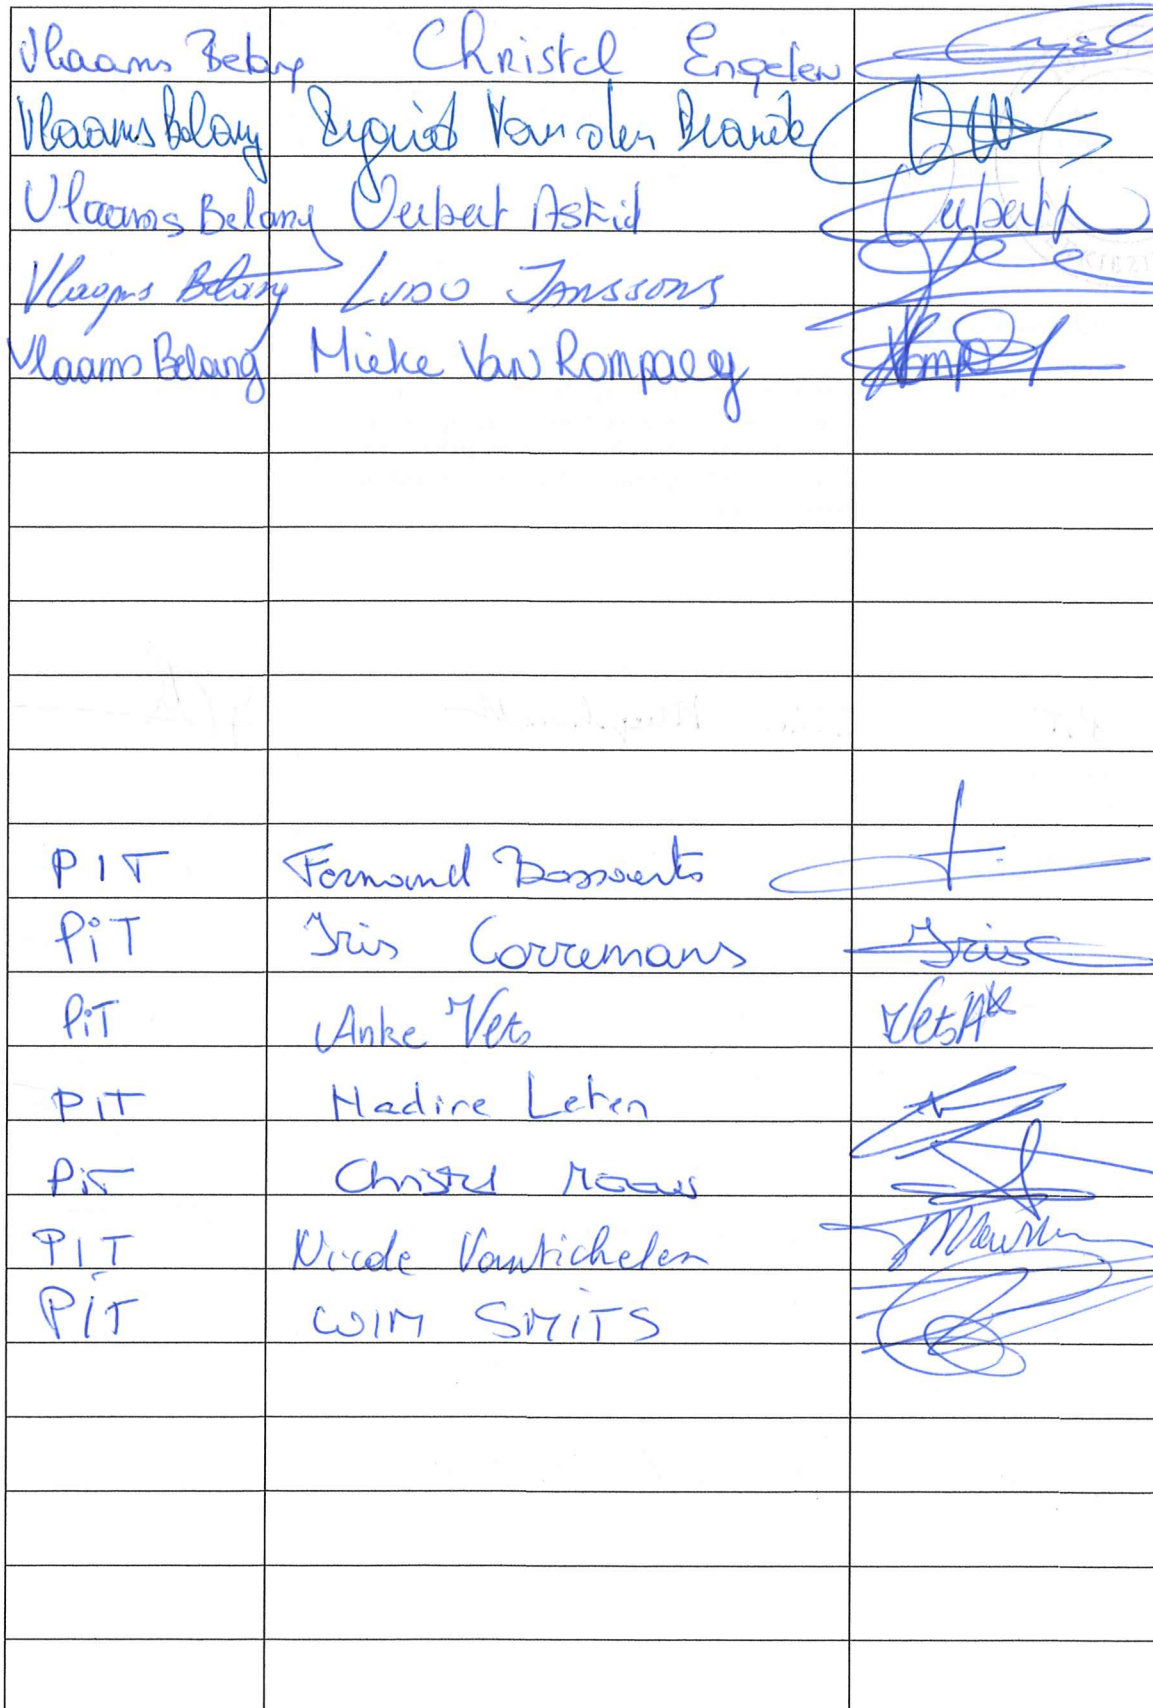 Vlaams Belang Christel Engelen
Vlaams Belang Van den
Vlaams Belang Verbert Astrid
Vlaams Belang LUDO JANSSONS
Vlaams Belang Mieke Van Rompaey
PIT Fernand Bossaerts
PiT Iris Corremans Iris
PiT Anke Vets Vets A
PIT Nadine Leten
PiT Christel Maows
PIT Nicole Vantichelen
PIT WIM SMITS